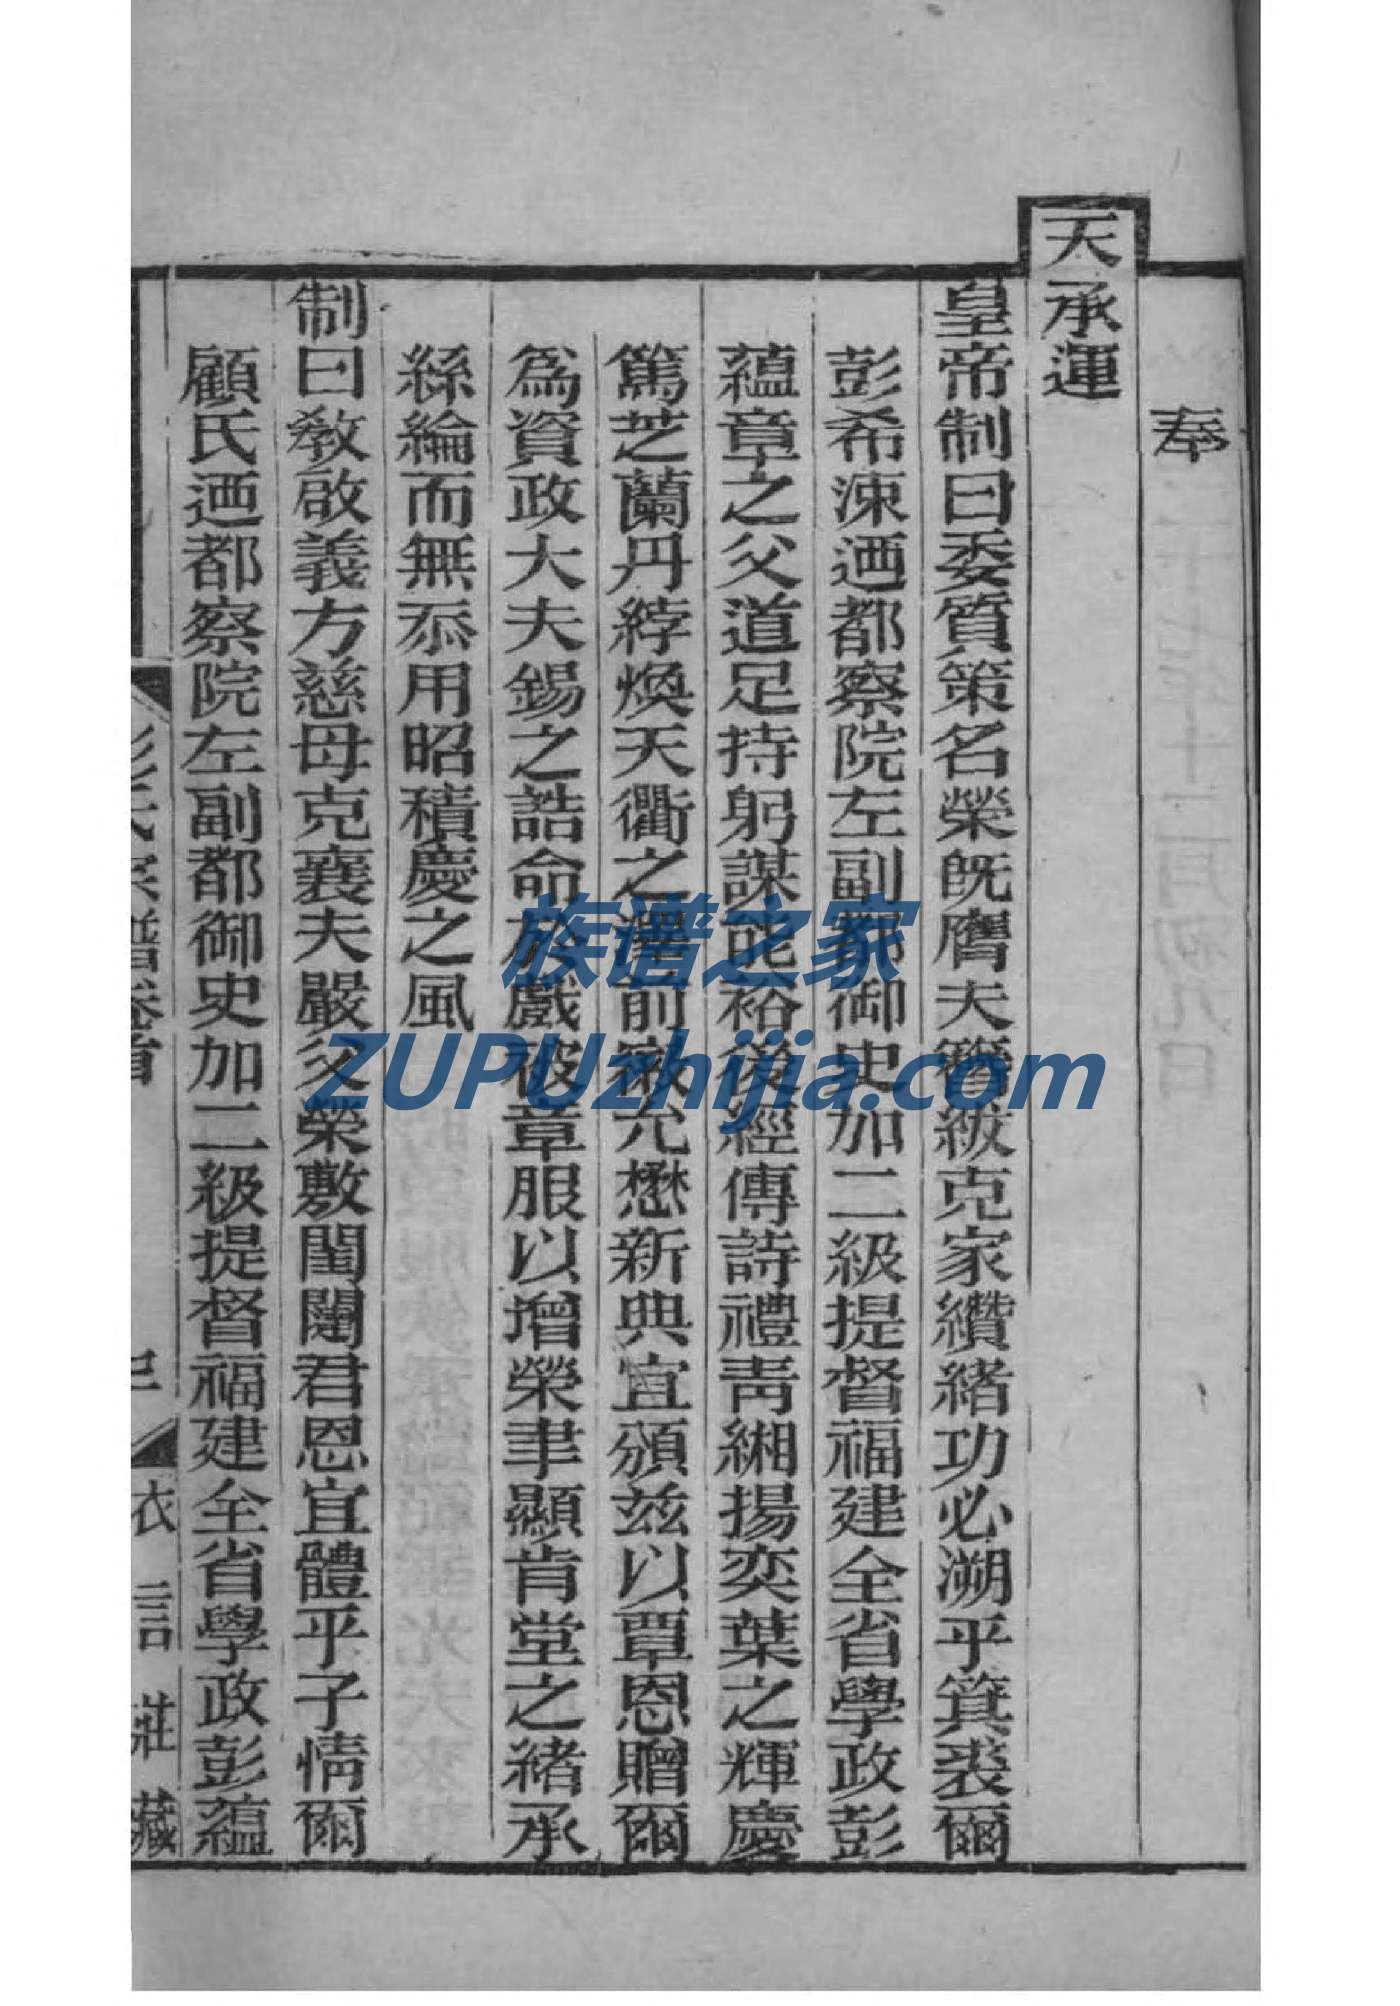 奉
天承運
皇帝制曰委質策名榮旣膺夫簪紱克家纘緒功必溯乎箕裘爾
彭希涑迺都察院左副都御史加二級提督福建全省學政彭
蘊章之父道足持躬謀能裕後經傳詩禮靑緗揚奕葉之輝慶
篤芝蘭丹綍煥天衢之澤前徽允懋新典宜頒兹以覃恩贈爾
爲資政大夫錫之誥命於戲被章服以增榮聿顯肯堂之緒承
絲綸而無忝用昭積慶之風
制曰敎啟義方慈母克襄夫嚴父榮敷閨闥君恩宜體乎子情爾
顧氏迺都察院左副都御史加二級提督福建全省學政彭蘊
彭氏宗譜卷首
衣言莊藏
族谱之家
ZUPUzhijia.com